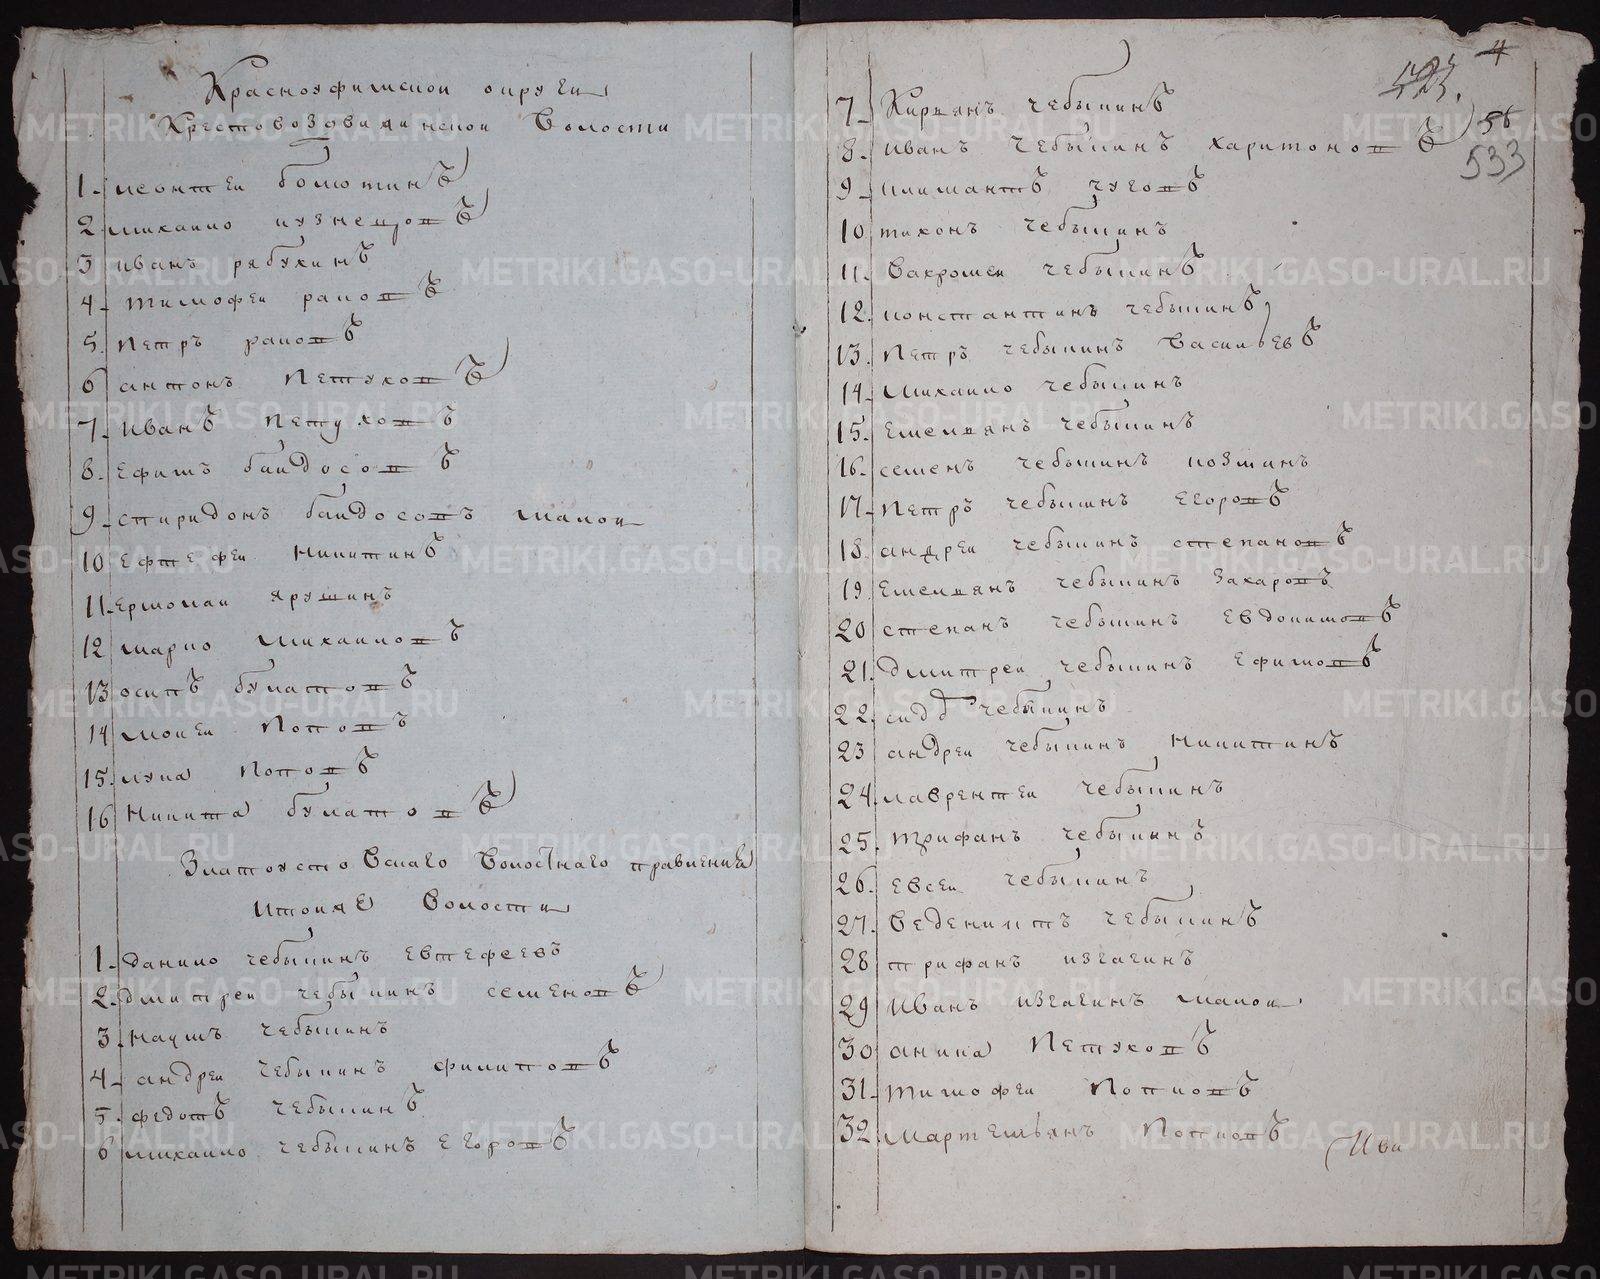 Красноуфимской округи
Крестовоздвиженской Волости
1. леонтеи болотинъ
2. михаило кузнецовъ
3 иванъ рябухинъ
4. тимофеи раковъ
5. Петръ раковъ
6 антонъ Петуховъ
7. Иванъ Петуховъ
8. Ефимъ байдосовъ
9. спиридонъ байдосовъ малои
10 Ефтефеи Никитинъ
11. Ермолаи Ярушинъ
12 марко Михаиловъ
13 осипъ булатовъ
14 Мокеи Поповъ
15. лука Поповъ
16 Никита булатовъ
Златоустовскаго Волостнаго правления
И тоияе Волости
1. данило чебыкинъ евтефеевъ
2. дмитреи чебыкинъ семеновъ
3. Наумъ чебыкинъ
4. андреи чебыкинъ филиповъ
5. федотъ чебыкинъ
6 михаило чебыкинъ Егоровъ
4
56
533
7. Кирьянъ чебыкинъ
8. иванъ чебыкинъ харитоновъ
9. чуговъ
10 тихонъ чебыкинъ
11. Вахромеи чебыкинъ
12. константинъ чебыкинъ
13. Петръ чебыкинъ Васильевъ
14. Михаило чебыкинъ
15. Емельянъ чебыкинъ
16. семенъ чебыкинъ козминъ
17. Петръ чебыкинъ Егоровъ
18. андреи чебыкинъ степановъ
19. Емельянъ чебыкинъ Захаровъ
20 степанъ чебыкинъ Евдокимовъ
21. Дмитреи чебыкинъ Ефимовъ
22. чебыкинъ
23 андреи чебыкинъ Никитинъ
24. лаврентеи чебыкинъ
25. Трифанъ чебыкинъ
26. Евсеи чебыкинъ
27. Веденихтъ чебыкинъ
28 трифанъ изгагинъ
29 Иванъ изгагинъ малои
30 аника Петуховъ
31. Тимофеи Попковъ
32. Мартемьянъ Попковъ
Ива
METRIKI.GASO-URAL.RU